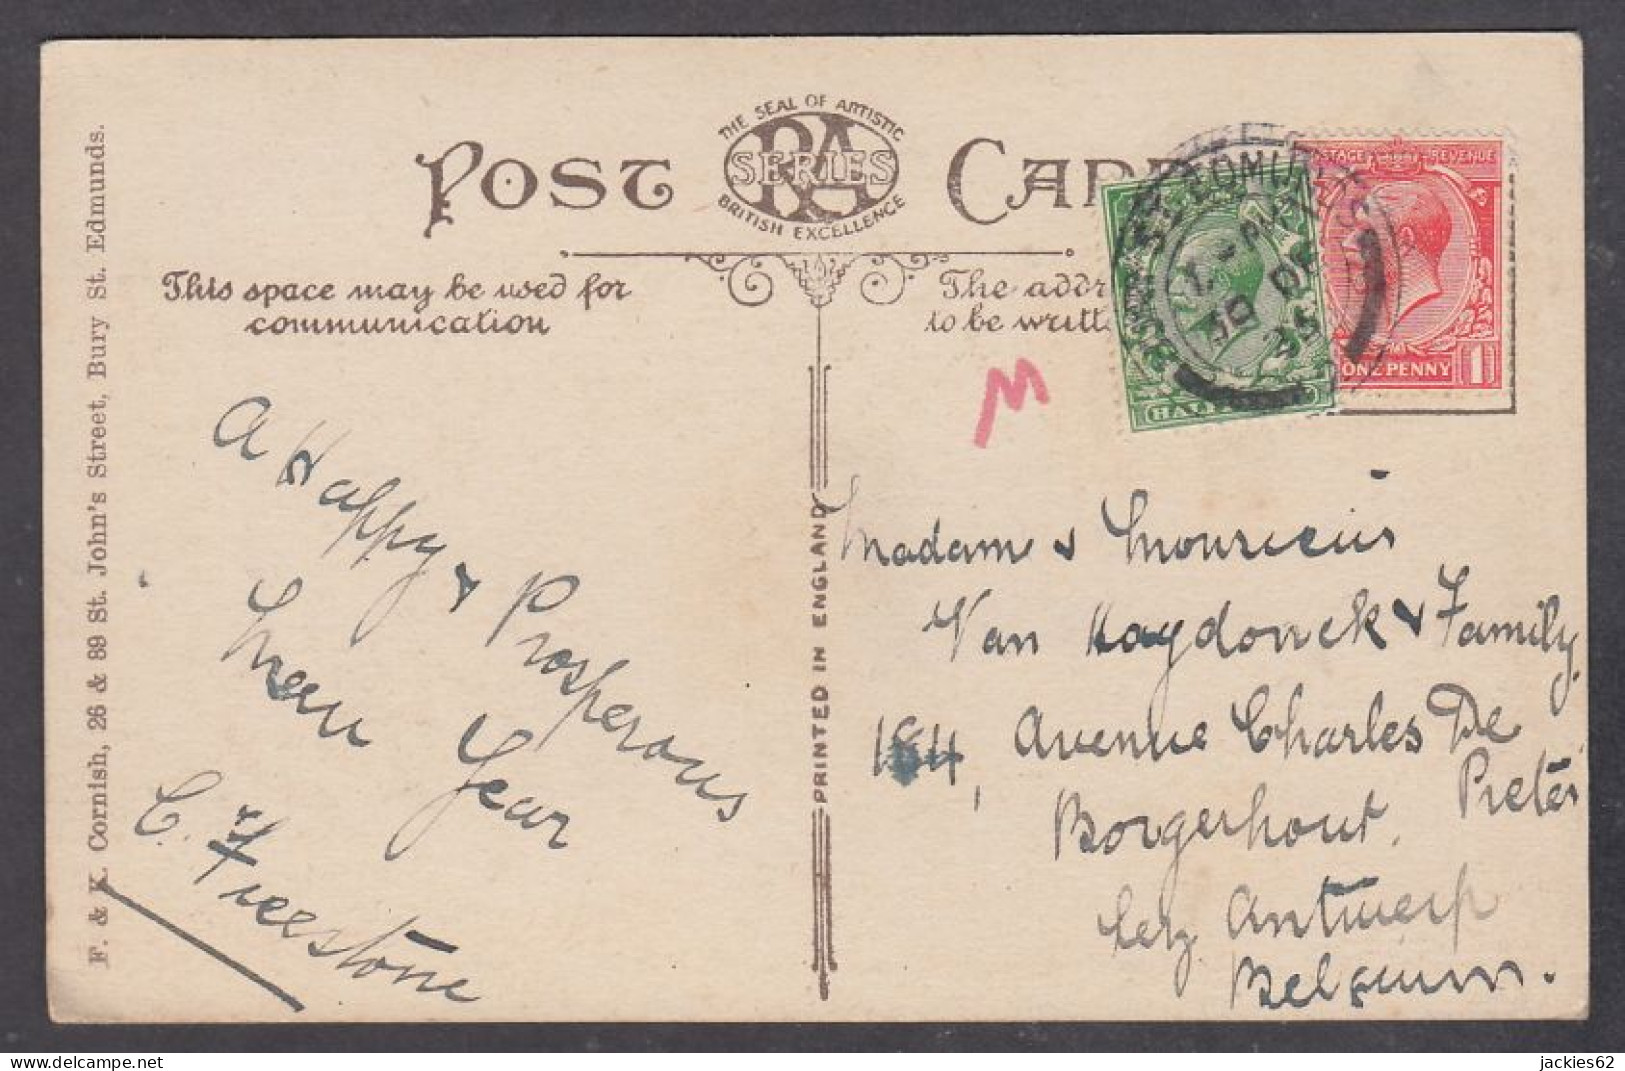 F. & K. Cornish, 26 & 89 St. John's Street, Bury St. Edmunds.
POST CARD
THE SEAL OF ARTISTIC
RA
SERIES
BRITISH EXCELLENCE
This space may be used for
communication
The addr
to be writt
PRINTED IN ENGLAND
BURY ST. EDMUNDS
1 - PM
30 DE
35
POSTAGE REVENUE
ONE PENNY 1
HALF
M
A Happy & Prosperous
New Year
C. Freestone
Madam & Monsieur
Van Haydonck & Family
184, Avenue Charles De
Preter
Borgerhout.
Antwerp
Belgium.
jackies62